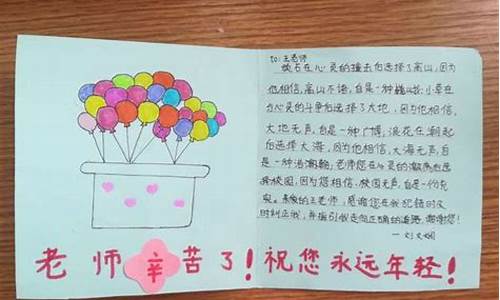 to:王老师
顽石在心灵的撞击后选择了高山,因为
他相信,高山不语,自是一种巍峨;小草在
与心灵的斗争后选择了大地,因为他相信,
大地无声,自是一种广博;浪花在潮起
后选择大海,因为他相信,大海无声,自
是一种浩瀚;老师您在心灵的激荡后选
择校园,因为您相信,校园无声,自是一份充
实。亲爱的王老师,感谢您在我犯错时及
时纠正我,并指引我走向正确的道路,谢谢您!
—刘文
老师辛苦了!祝您永远年轻!